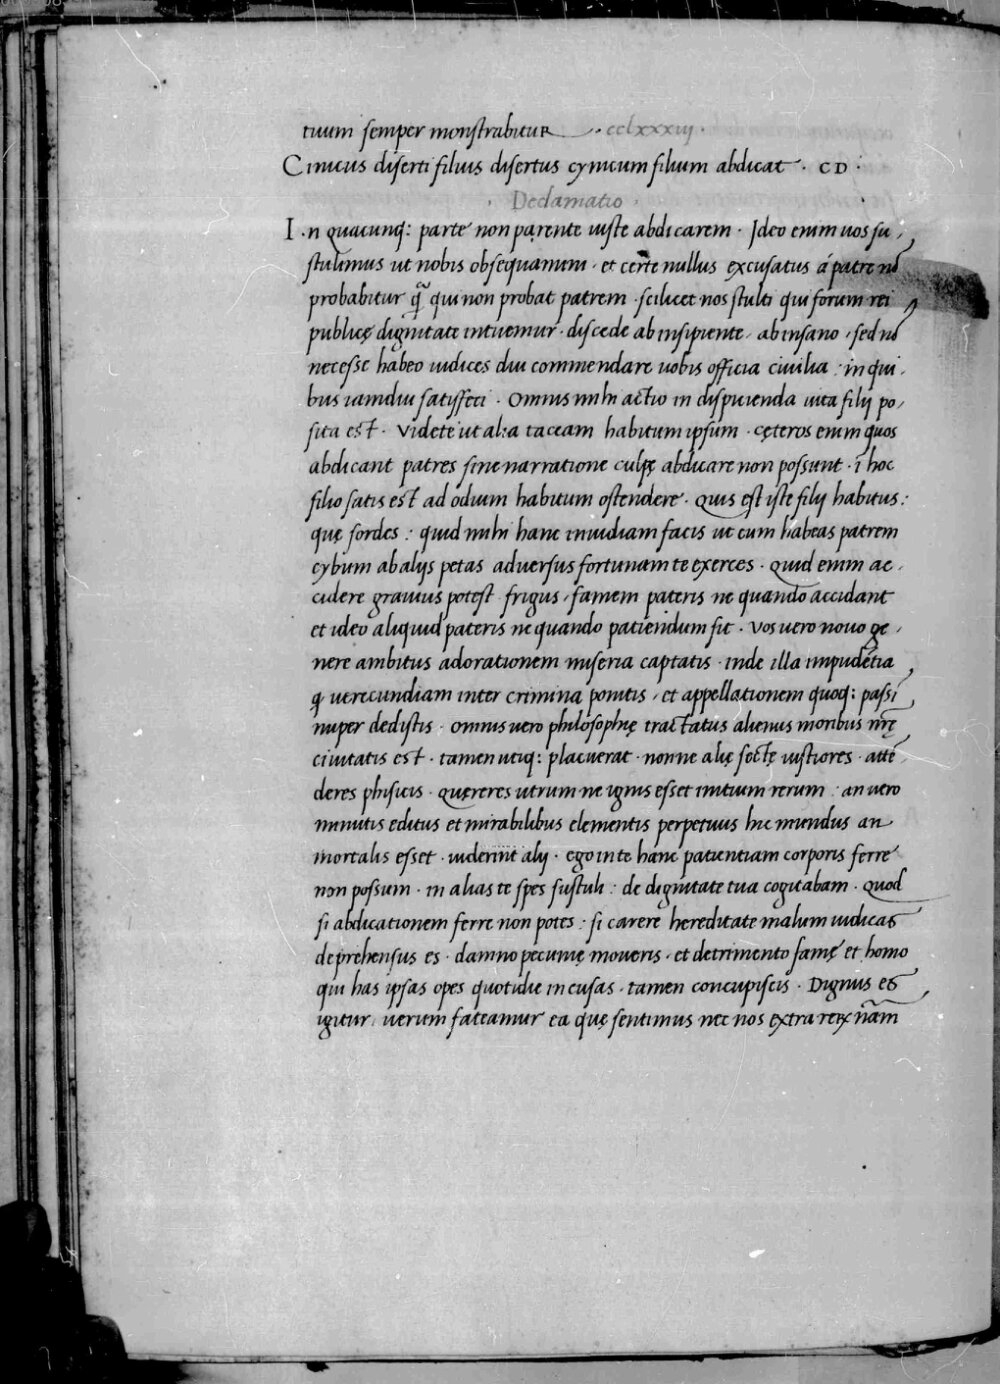 tuum semper monstrabitur · cclxxxiij ·
Cinicus diserti filius disertus cynicum filium abdicat · CD ·
· Declamatio ·
I·n quacunq: parte non parente iuste abdicarem · Ideo enim uos su,
stulimus ut nobis obsequamini · et certe nullus excusatus á patre nō
probabitur q̄ qui non probat patrem · scilicet nos stulti qui forum rei
publicę dignitate intuemur · discede ab insipiente, ab insano, sed nō
necesse habeo iudices diu commendare uobis officia ciuilia : in qui,
bus iamdiu satisfeci · Omnis mihi actio in dispicienda uita filij po,
sita est · Videte ut alia taceam habitum ipsum · cęteros enim quos
abdicant patres sine narratione culpę abdicare non possunt · ī hoc
filio satis est ad odium habitum ostendere · Quis est iste filij habitus:
quę sordes : quid mihi hanc inuidiam facis ut cum habeas patrem
cybum ab alijs petas aduersus fortunam te exerces · Quid enim ac,
cidere grauius potest frigus, famem pateris ne quando accidant
et ideo aliquid pateris ne quando patiendum sit · Vos uero nouo ge,
nere ambitus adorationem miseria captatis · inde illa impudētia,
q uerecundiam inter crimina ponitis, et appellationem quoq: passī
nuper dedistis · Omnis uero philosophię tractatus alienus moribus nrę
ciuitatis est · tamen utiq: placuerat · nonne alię sectę iustiores · attē,
deres phisicis · quęreres utrum ne ignis esset initium rerum : an uero
minutis editus et mirabilibus elementis perpetuus hic mundus an
mortalis esset · uiderint alij · ego in te hanc patientiam corporis ferre
non possum · in alias te spes sustuli : de dignitate tua cogitabam · Quod
si abdicationem ferre non potes : si carere hereditate malum iudicas
deprehensus es · damno pecunię moueris · et detrimento famę et homo
qui has ipsas opes quotidie incusas · tamen concupiscis · Dignus es
igitur, uerum fateamur ea quę sentimus nec nos extra reꝝ nām